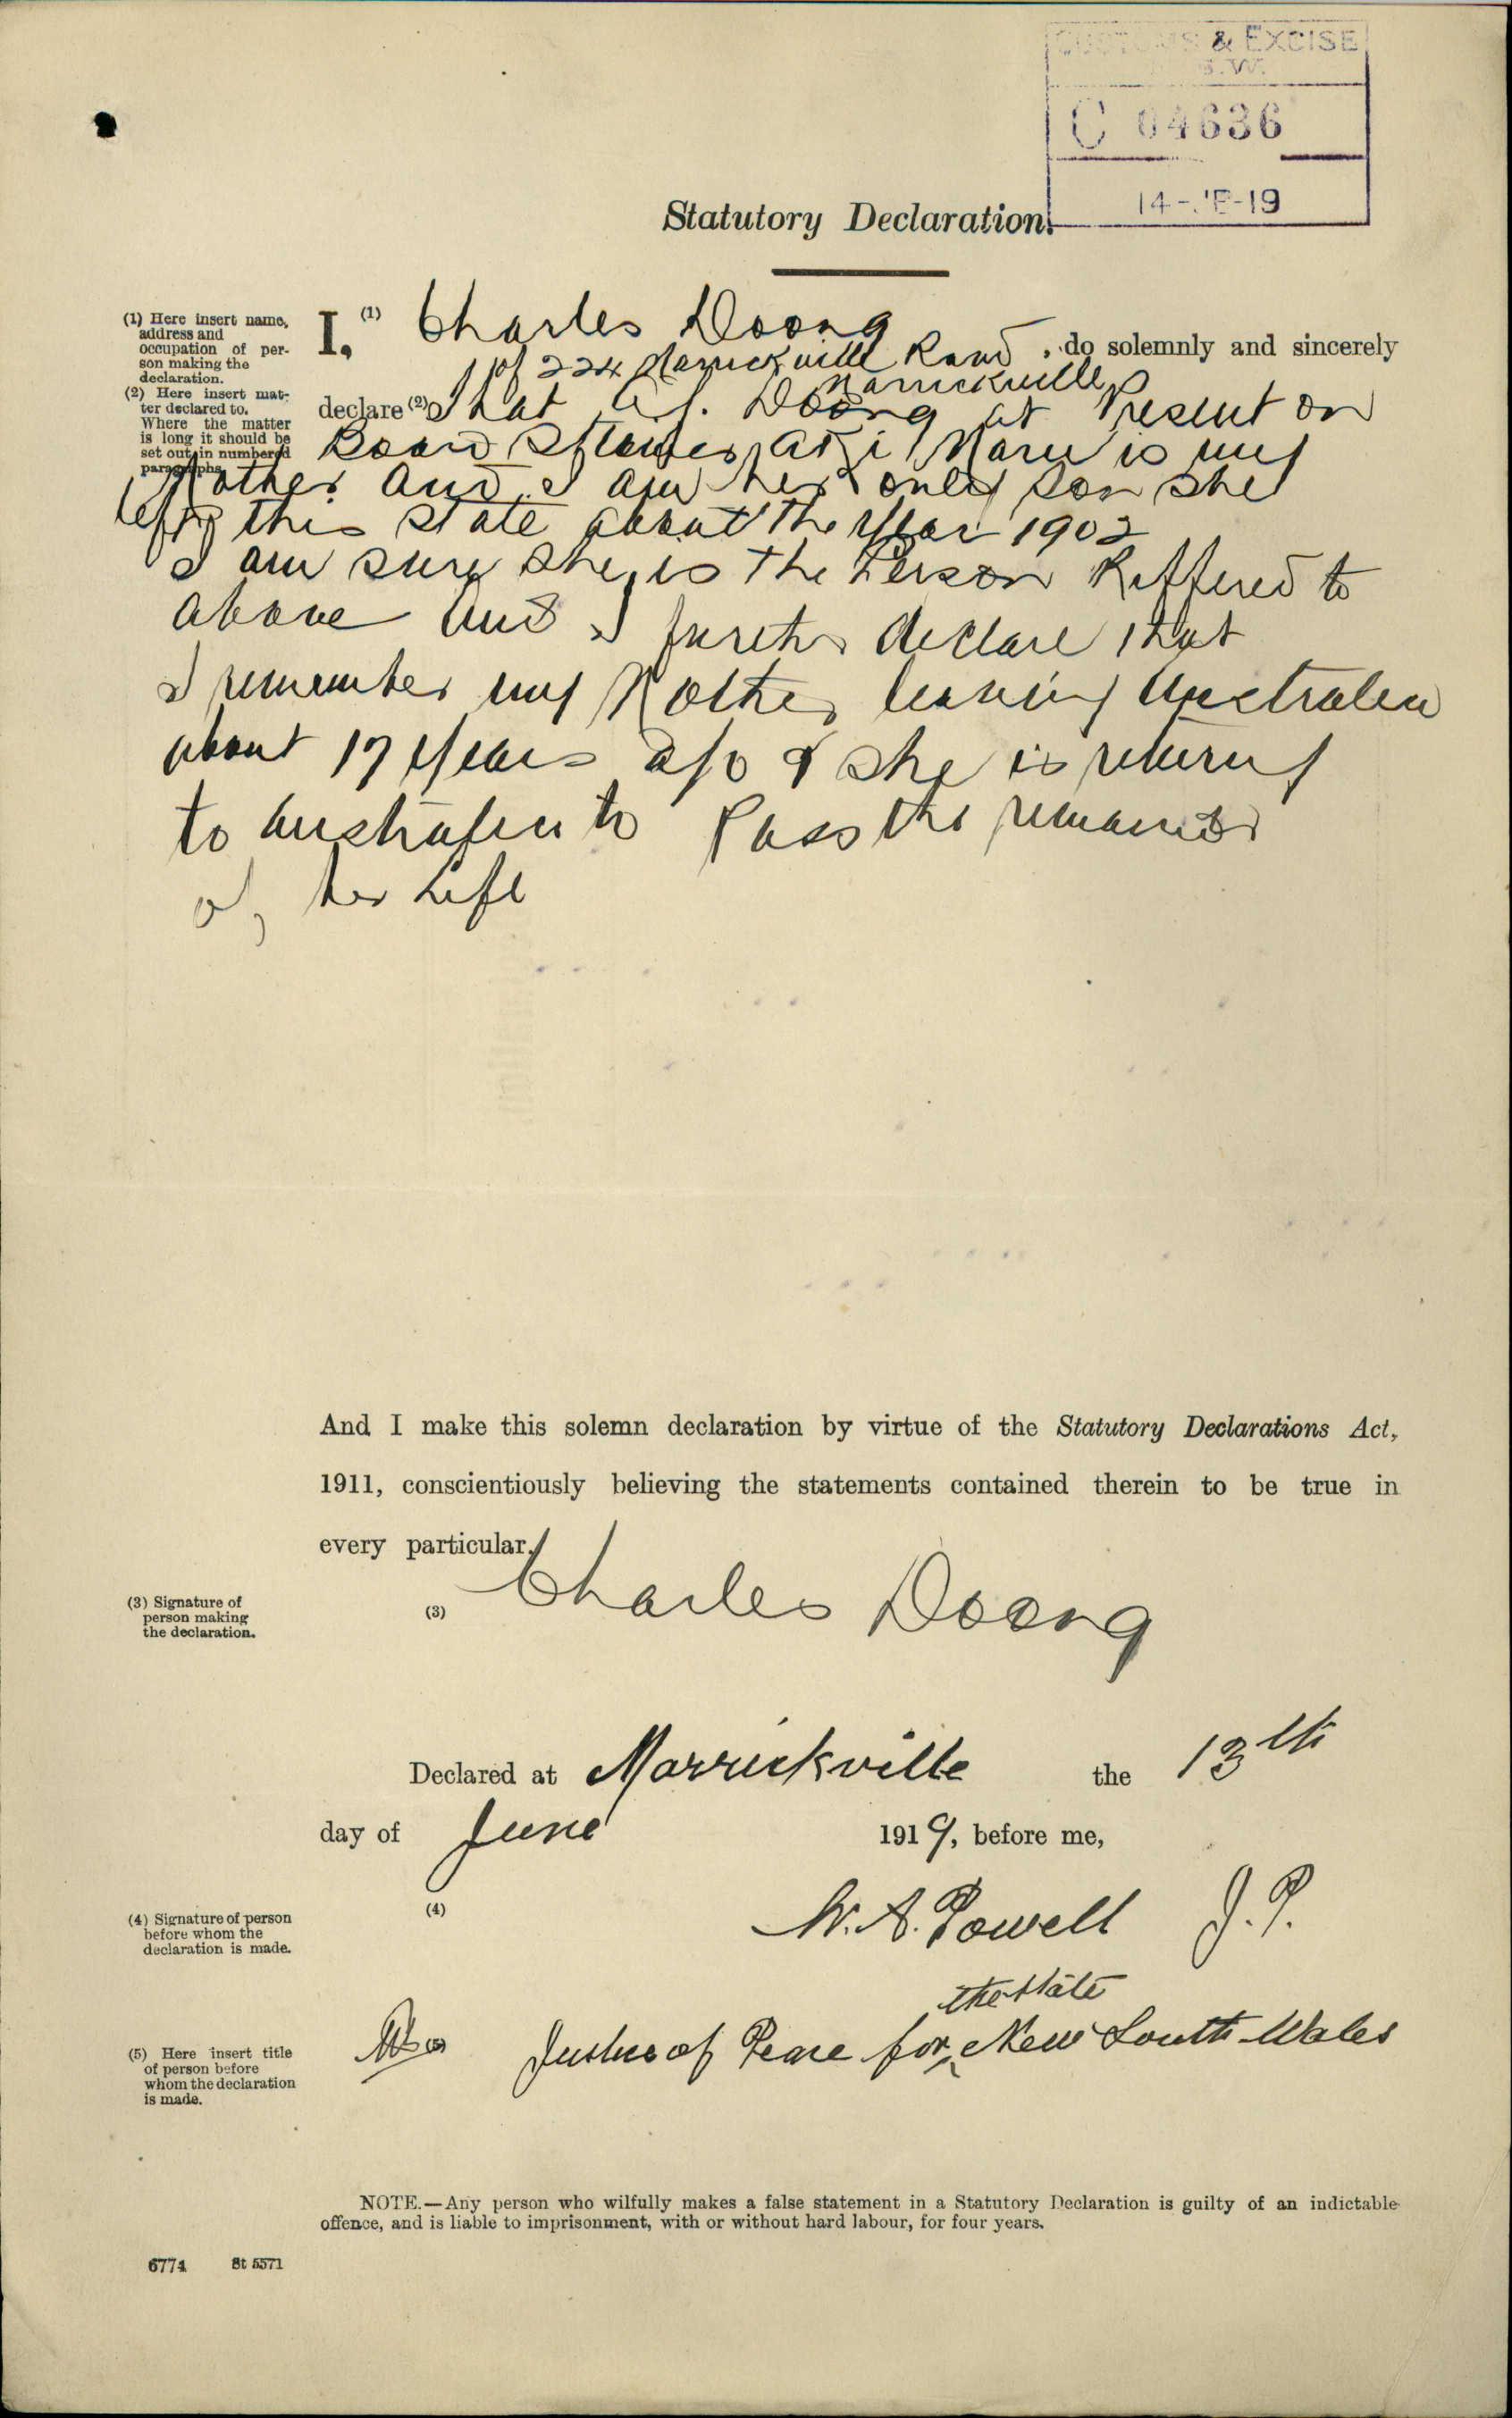 CUSTOMS & EXCISE
S.W.
C 04636
14-JE-19
Statutory Declaration.
(1) Here insert name,
address and
occupation of per-
son making the
declaration.
(2) Here insert mat-
ter declared to.
Where the matter
is long it should be
set out in numbered
paragraphs.
I, (1) Charles Doong
of 224 Marrickville Road, do solemnly and sincerely
Marrickville
declare (2) That Doong at Present on
Board Steamer Aki Maru is my
Mother and I am her only son she
left this state about the year 1902
I am sure she is the Person Reffered to
above and I further declare that
I remember my Mother leaving Australia
about 17 years ago & she is returning
to Australia to Pass the remainder
of her Life
And I make this solemn declaration by virtue of the Statutory Declarations Act,
1911, conscientiously believing the statements contained therein to be true in
every particular.
(3) Signature of
person making
the declaration.
(3) Charles Doong
Declared at Marrickville the 13th
day of June 1919, before me,
(4) Signature of person
before whom the
declaration is made.
(4) W. A. Powell J.P.
the State
(5) Here insert title
of person before
whom the declaration
is made.
(5) Justice of Peace for New South Wales
NOTE.—Any person who wilfully makes a false statement in a Statutory Declaration is guilty of an indictable
offence, and is liable to imprisonment, with or without hard labour, for four years.
6774 St 5571